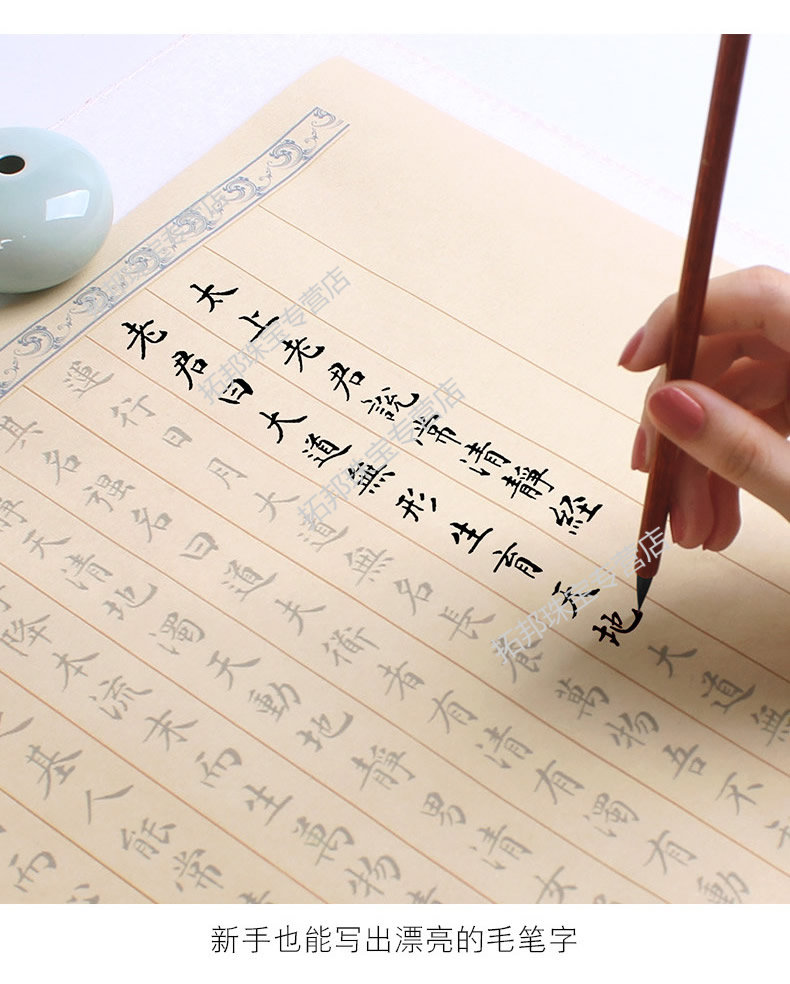 太上老君說常清靜経
老君曰大道無形生育天地大道無
運行日月大道無名長養萬物吾不
其名強名曰道夫衜者有清有濁有動
靜天清地濁天動地靜男清女
降本流末而生萬物清
基人能常
而
拓邦珠宝专营店
拓邦珠宝专营店
拓邦珠宝专营店
新手也能写出漂亮的毛笔字